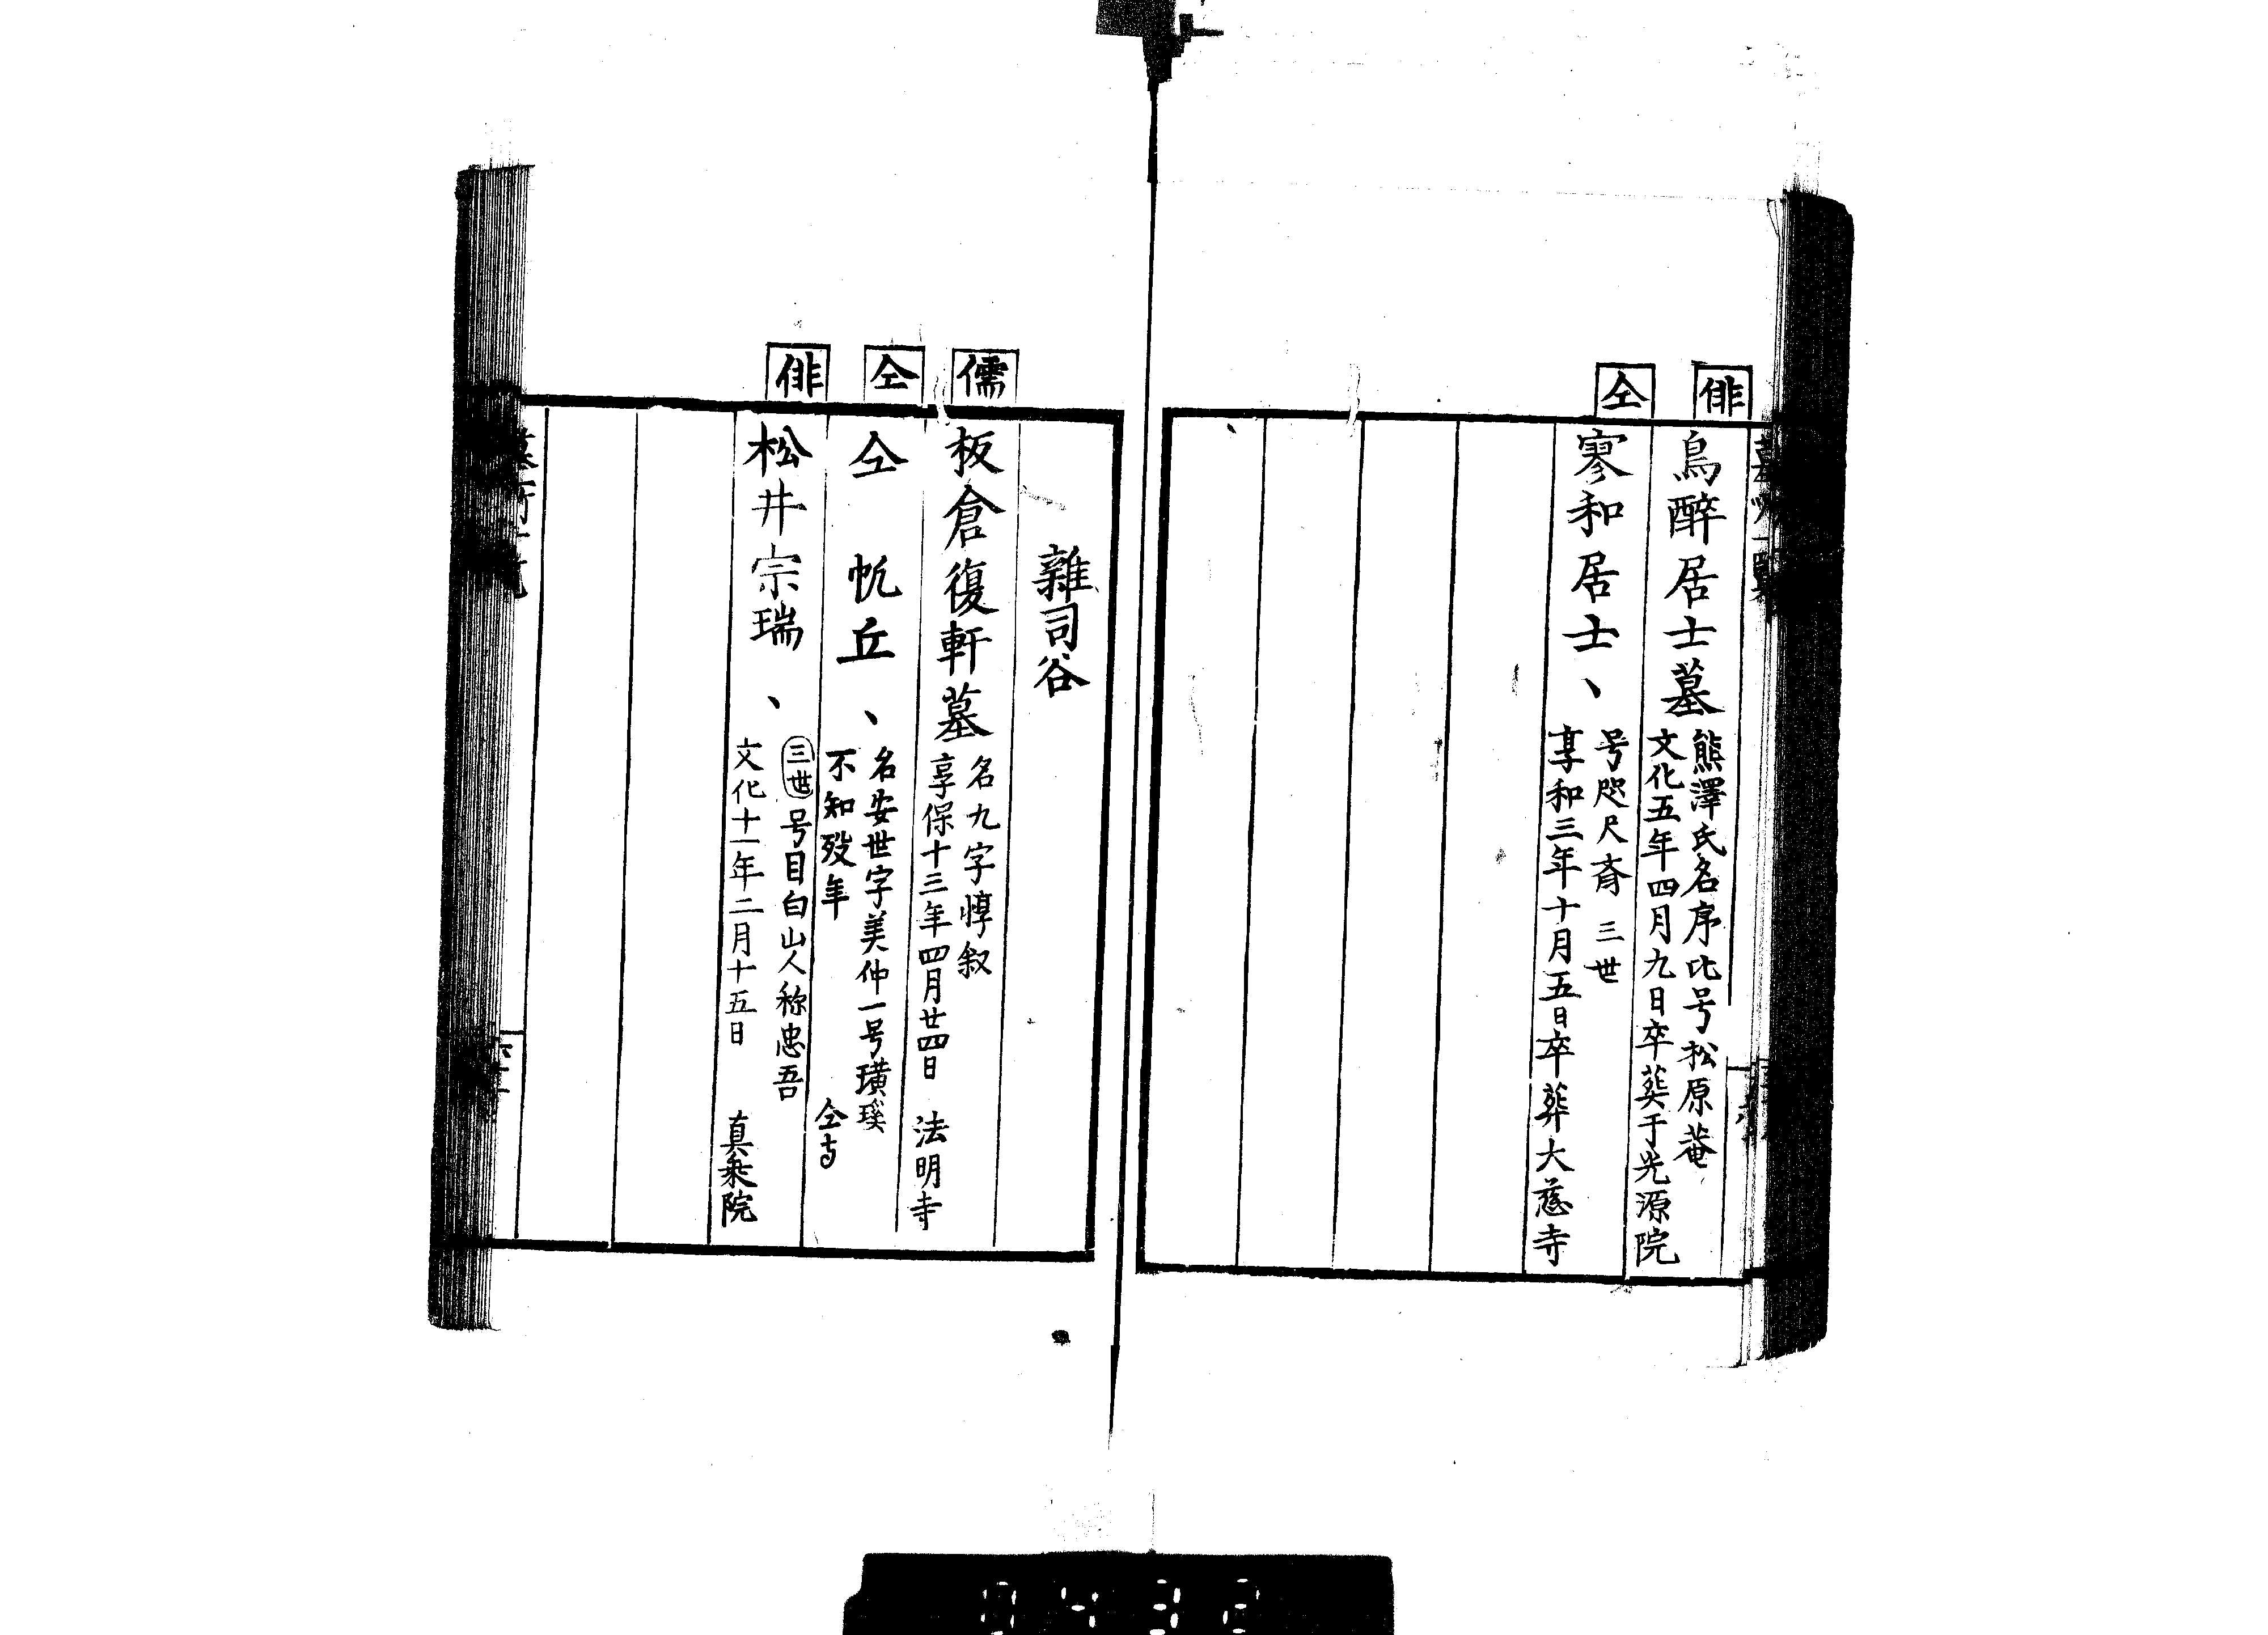 俳
鳥醉居士墓
熊澤氏名序比号松原菴
文化五年四月九日卒葬于光源院
仝
寥和居士、
号咫尺斎 三世
享和三年十月五日卒葬大慈寺
雜司谷
儒
板倉復軒墓
名九字惇叙
享保十三年四月廿四日 法明寺
仝
仝 帆丘、
名安世字美仲一号璜瑗
不知歿年 仝寺
俳
松井宗瑞、
三世号目白山人称忠吾
文化十一年二月十五日 真乗院